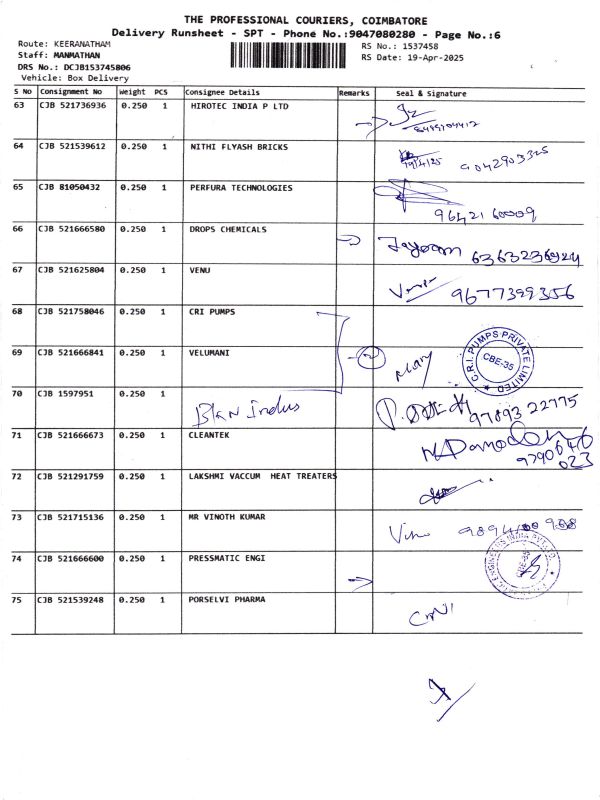 THE PROFESSIONAL COURIERS, COIMBATORE
Delivery Runsheet - SPT - Phone No.:9047080280 - Page No.:6
Route: KEERANATHAM
RS No.: 1537458
Staff: MANMATHAN
RS Date: 19-Apr-2025
DRS No.: DCJB153745806
Vehicle: Box Delivery
S No Consignment No Weight PCS Consignee Details Remarks Seal & Signature
63 CJB 521736936 0.250 1 HIROTEC INDIA P LTD
64 CJB 521539612 0.250 1 NITHI FLYASH BRICKS 19/4/25 9042903325
65 CJB 81050432 0.250 1 PERFURA TECHNOLOGIES 9642160009
66 CJB 521666580 0.250 1 DROPS CHEMICALS Jayaram 6363236924
67 CJB 521625804 0.250 1 VENU 9677399356
68 CJB 521758046 0.250 1 CRI PUMPS
C.R.I. PUMPS PRIVATE LIMITED CBE-35
69 CJB 521666841 0.250 1 VELUMANI Mary
70 CJB 1597951 0.250 1 97893 22775
71 CJB 521666673 0.250 1 CLEANTEK
72 CJB 521291759 0.250 1 LAKSHMI VACCUM HEAT TREATERS
73 CJB 521715136 0.250 1 MR VINOTH KUMAR Vino
74 CJB 521666600 0.250 1 PRESSMATIC ENGI CBE-35
75 CJB 521539248 0.250 1 PORSELVI PHARMA